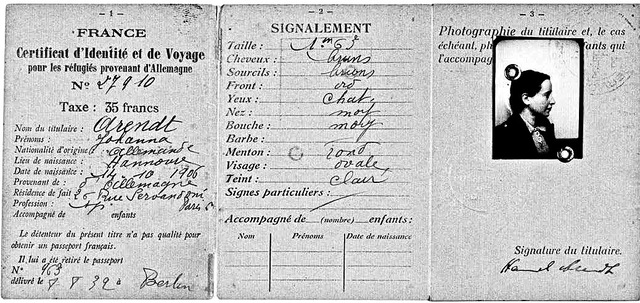 - 1 -
FRANCE
Certificat d'Identité et de Voyage
pour les réfugiés provenant d'Allemagne
No 27910
Taxe : 35 francs
Nom du titulaire : Arendt
Prénoms : Johanna
Nationalité d'origine : allemande
Lieu de naissance : Hannovre
Date de naissance : 14-10 1906
Provenant de : Allemagne
Résidence de fait : 26 Rue Servandoni
Profession : Paris
Accompagné de enfants
Le détenteur du présent titre n'a pas qualité pour
obtenir un passeport français.
Il lui a été retiré le passeport
No 463
délivré le 8 8 32 à Berlin
- 2 -
SIGNALEMENT
Taille : 1m 63
Cheveux : bruns
Sourcils : bruns
Front : ord
Yeux : chat.
Nez : moy
Bouche : moy
Barbe :
Menton : rond
Visage : ovale
Teint : clair
Signes particuliers :
Accompagné de (nombre) enfants :
Nom Prénoms Date de naissance
- 3 -
Photographie du titulaire et, le cas
échéant, ph fants qui
l'accompag
Signature du titulaire.